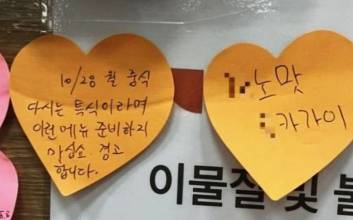 10/28 월 중식
다시는 특식이라며
이런메뉴 준비하지
마십쇼. 경고
합니다.
노맛
카가이
이물질 및 불